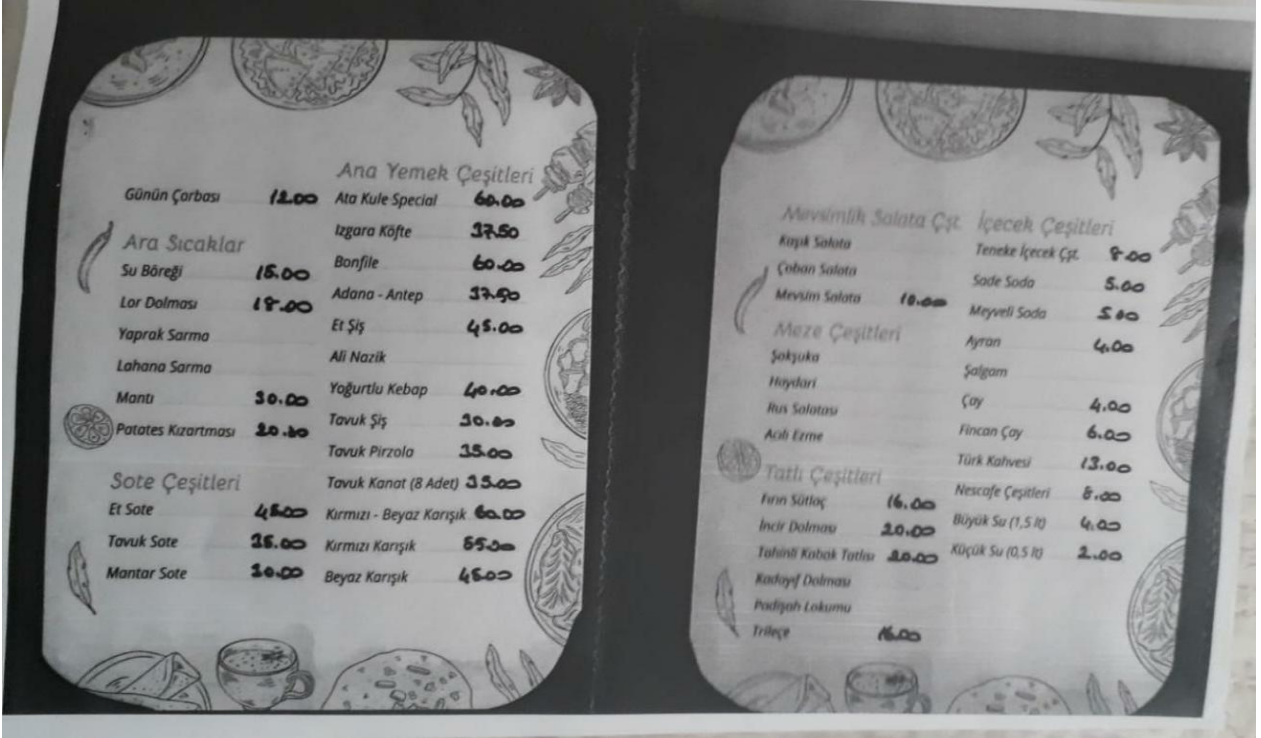 Günün Çorbası 12.00
Ara Sıcaklar
Su Böreği 15.00
Lor Dolması 18.00
Yaprak Sarma
Lahana Sarma
Mantı 30.00
Patates Kızartması 20.00
Sote Çeşitleri
Et Sote 45.00
Tavuk Sote 35.00
Mantar Sote 30.00
Ana Yemek Çeşitleri
Ata Kule Special 60.00
Izgara Köfte 37.50
Bonfile 60.00
Adana - Antep 37.50
Et Şiş 45.00
Ali Nazik
Yoğurtlu Kebap 40.00
Tavuk Şiş 30.00
Tavuk Pirzola 35.00
Tavuk Kanat (8 Adet) 35.00
Kırmızı - Beyaz Karışık 60.00
Kırmızı Karışık 55.00
Beyaz Karışık 45.00
Mevsimlik Salata Çşt.
Kaşık Salata
Çoban Salata
Mevsim Salata 10.00
Meze Çeşitleri
Şakşuka
Haydari
Rus Salatası
Acılı Ezme
Tatlı Çeşitleri
Fırın Sütlaç 16.00
İncir Dolması 20.00
Tahinli Kabak Tatlısı 20.00
Kadayıf Dolması
Padişah Lokumu
Trileçe 16.00
İçecek Çeşitleri
Teneke İçecek Çşt. 8.00
Sade Soda 5.00
Meyveli Soda 5.00
Ayran 4.00
Şalgam
Çay 4.00
Fincan Çay 6.00
Türk Kahvesi 13.00
Nescafe Çeşitleri 8.00
Büyük Su (1,5 lt) 4.00
Küçük Su (0,5 lt) 2.00